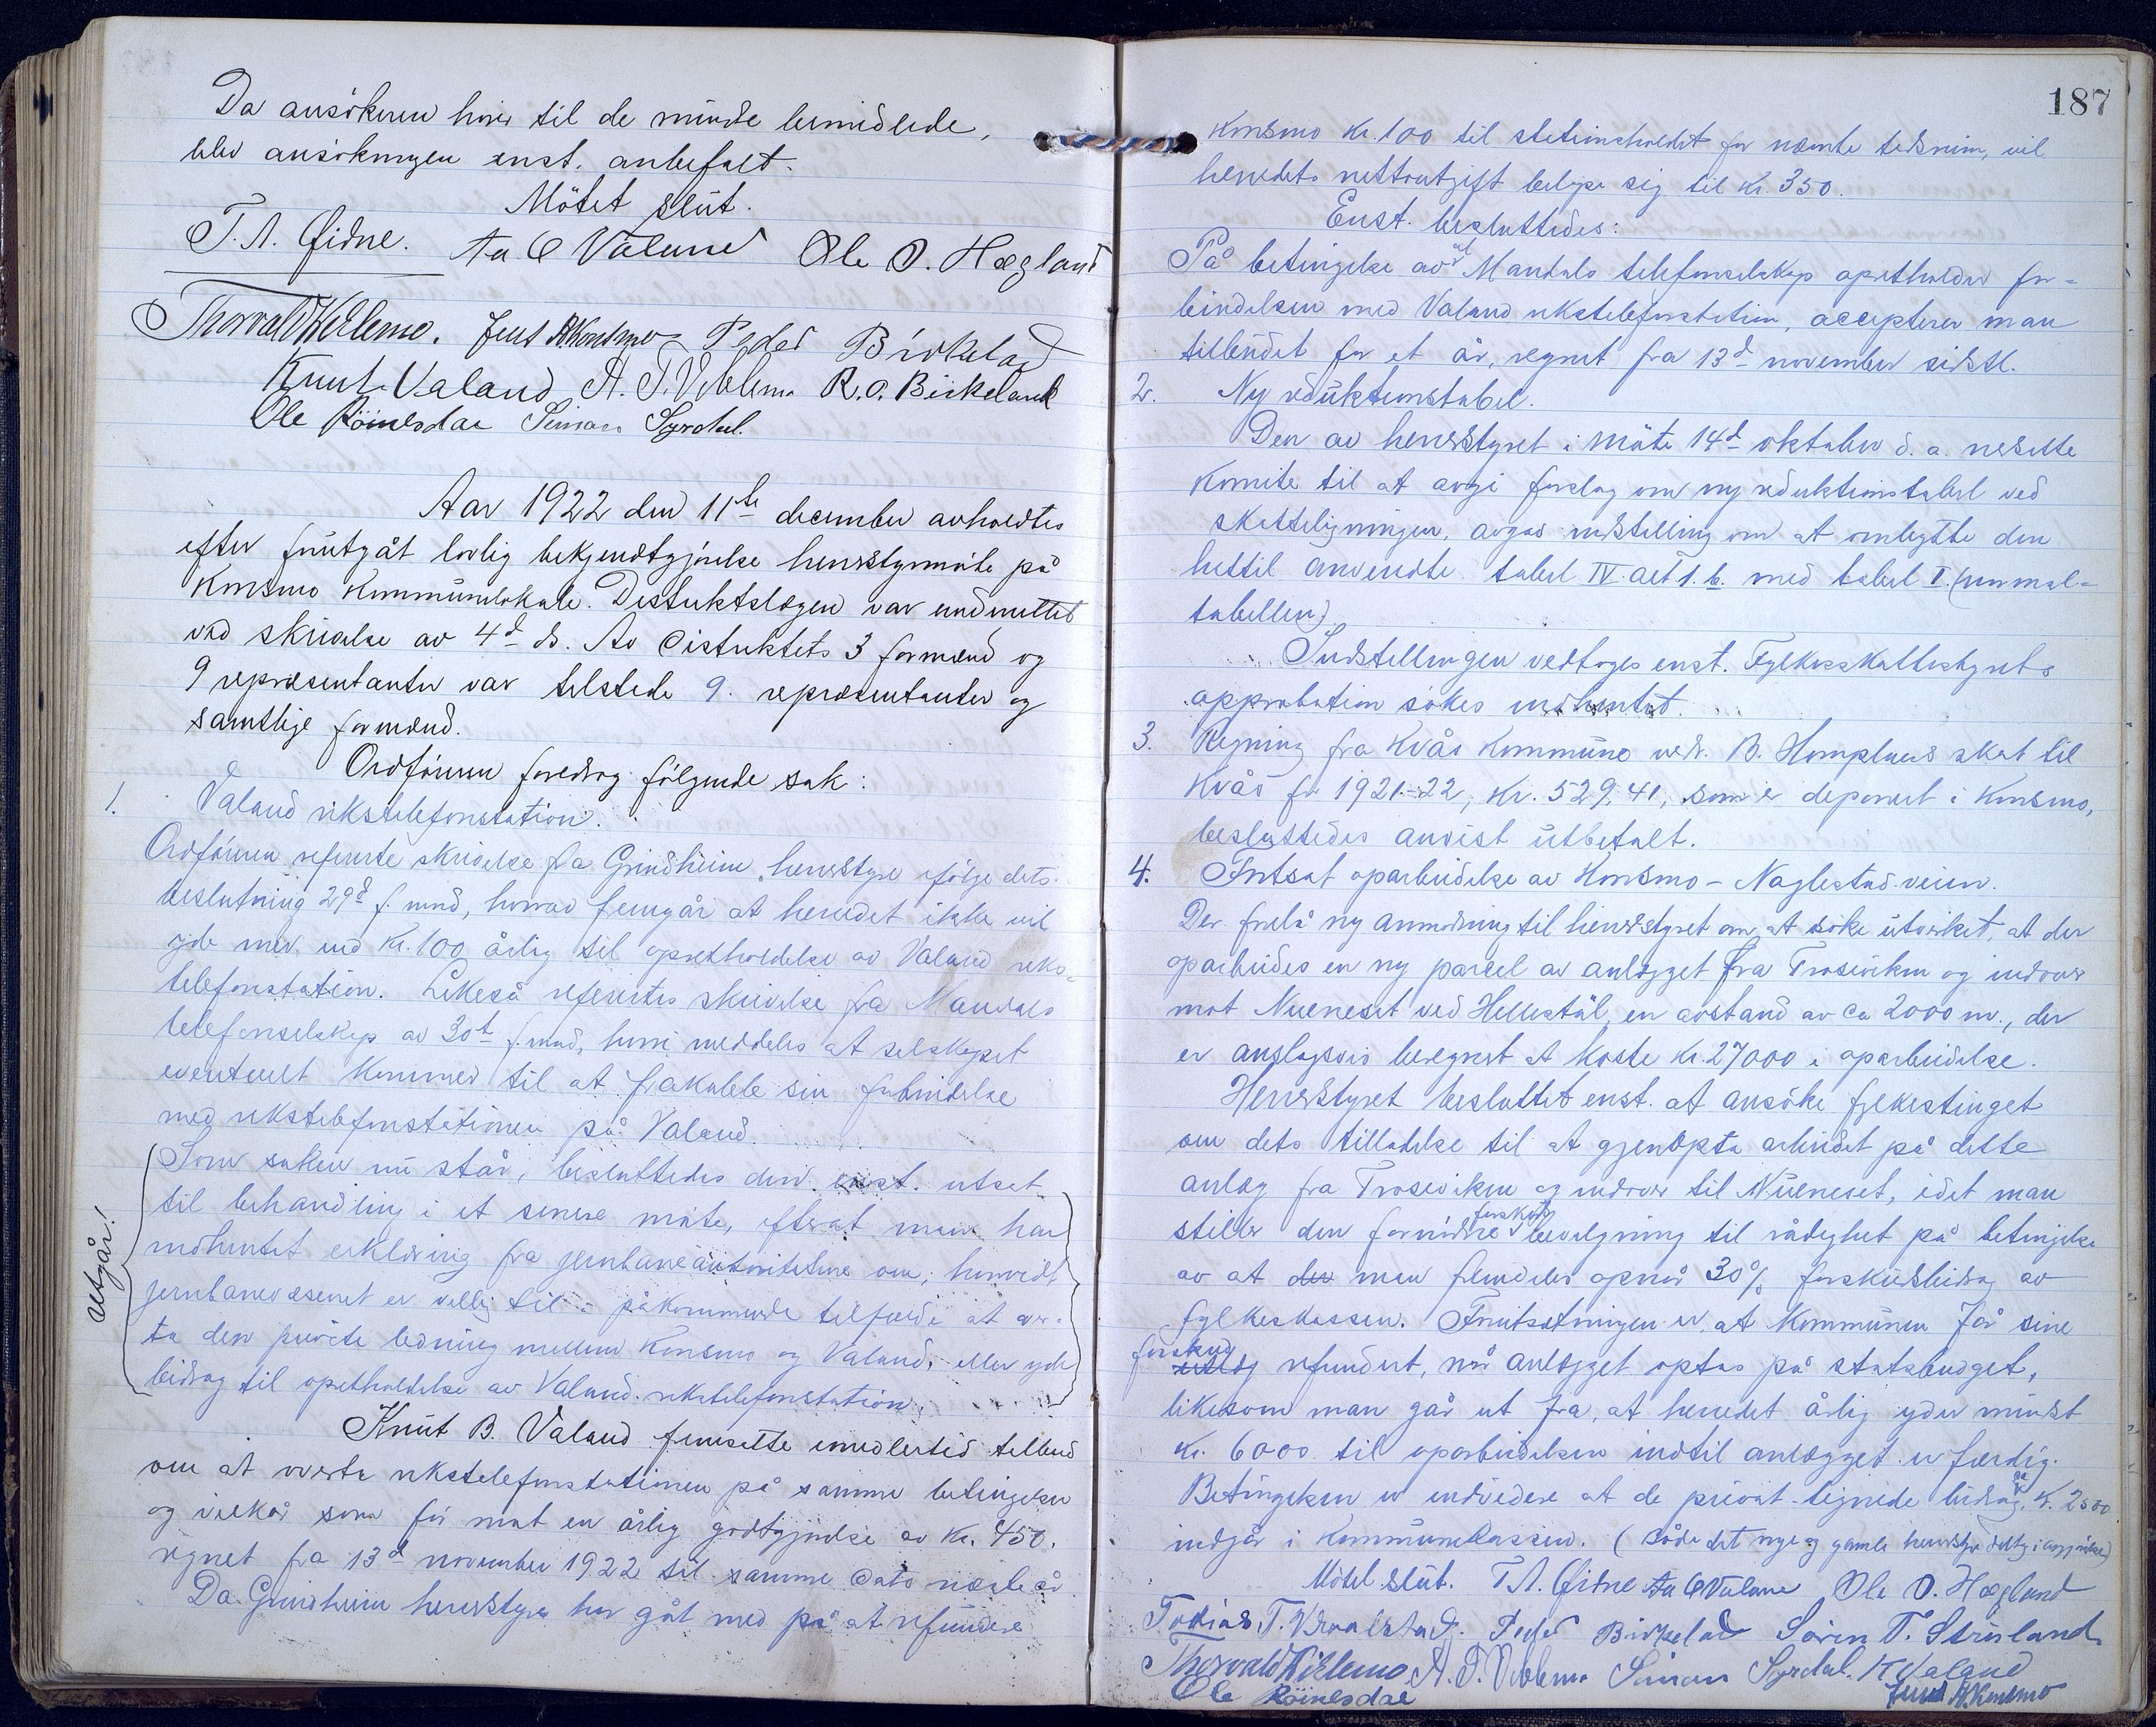 Da ansökeren hörer til de mindre bemidlede,
blev ansökningen enst. anbefalt.
Mötet slut.
T. A. Öidne. Aa O Valand Ole O. Hægland
Thorvald Velemo. Jens A. Konsmo Peder Birkeland
Knut Valand A. T. Veblemo R. O. Birkeland
Ole Röinesdal Simon Syrdal.
Aar 1922 den 11te december avholdtes
efter forutgåt lovlig bekjendtgjörelse herredsstyremöte på
Konsmo kommunelokale. Distriktslægen var underrettet
ved skrivelse av 4d ds. Av distriktets 3 formænd og
9 repræsentanter var tilstede 9. repræsentanter og
samtlige formænd.
Ordföreren foredrog fölgende sak:
1. Valand rikstelefonstation.
Ordföreren refererte skrivelse fra Grindheim herredsstyre ifölge dets
beslutning 29d f. mnd, hvorav fremgår at herredet ikke vil
yde mer end kr. 100 årlig til opretholdelse av Valand riks-
telefonstation. Likeså refertes skrivelse fra Mandals
telefonselskap av 30t f. mnd, hvori meddeles at selskapet
eventuelt kommer til at frakoble sin forbindelse
med rikstelefonstationen på Valand.
Som saken nu står, besluttedes den enst. utsat
til behandling i et senere möte, efterat man har
indhentet erklæring fra jernbaneautoritetene om, hvorvidt
jernbanevæsenet er villig til i påkommende tilfælde at over-
ta den private ledning mellem Konsmo og Valand, eller yde
bidrag til opretholdelse av Valand rikstelefonstation.
Utgår!
Knut B. Valand fremsatte imidlertid tilbud
om at overta rikstelefonstationen på samme betingelser
og vilkår som för mot en årlig godtgjörelse av kr. 450.
regnet fra 13d november 1922 til samme dato næste år
Da Grindheim herredsstyre har gåt med på at refundere
187
Konsmo kr. 100 til stationsholdet for nævnte tidsrum, vil
herredets nettoutgift belöpe sig til kr. 350.
Enst. besluttedes:
På betingelse av at Mandals telefonselskap opretholder for-
bindelsen med Valand rikstelefonstation, accepterer man
tilbudet for et år, regnet fra 13d november sidstl.
2. Ny reduktionstabel.
Den av herredsstyret i möte 14d oktober d. a. nedsatte
komite til at avgi forslag om ny reduktionstabel ved
skatteligningen, avgav indstilling om at ombytte den
hittil anvendte tabel IV alt 1. b. med tabel I. (normal-
tabellen)
Indstillingen vedtoges enst. Fylkesskattestyrets
approbation sökes indhentet.
3. Regning fra Kvås kommune vedr. B. Homplands skat til
Kvås for 1921-22, kr. 529,41, som er deponert i Konsmo,
besluttedes anvist utbetalt.
4. Fortsat oparbeidelse av Konsmo - Naglestad veien.
Der forelå ny anmodning til herredsstyret om at söke utvirket, at der
oparbeides en ny parcel av anlægget fra Troseviken og indover
mot Nueneset ved Hellestöl, en avstand av ca 2000 m., der
er anslagsvis beregnet at koste kr. 27000 i oparbeidelse.
Herredsstyret besluttet enst. at ansöke fylkestinget
om dets tilladelse til at gjenopta arbeidet på dette
anlæg fra Troseviken og indover til Nueneset, idet man
stiller den fornödne forskuds bevilgning til rådighet på betingelse
av at der man fremdeles opnår 30% forskudsbidrag av
fylkeskassen. Forutsetningen er, at kommunen får sine
forskud utlæg refundert, når anlægget optas på statsbudget,
likesom man går ut fra, at herredet årlig yder minst
kr. 6000 til oparbeidelsen indtil anlægget er færdig.
Betingelsen er endvidere at de privat tegnede bidrag på k. 2500
indgår i kommunekassen. (Både det nye og gamle herredsstyre deltog i avgjörelsen)
Mötet slut. T A. Öidne Aa O Valand Ole O. Hægland
Tobias T. Peder Birkeland Sören T. Stuland
Thorvald Velemo A. T. Veblemo Simon Syrdal. K Valand
Ole Röinesdal Jens A. Konsmo